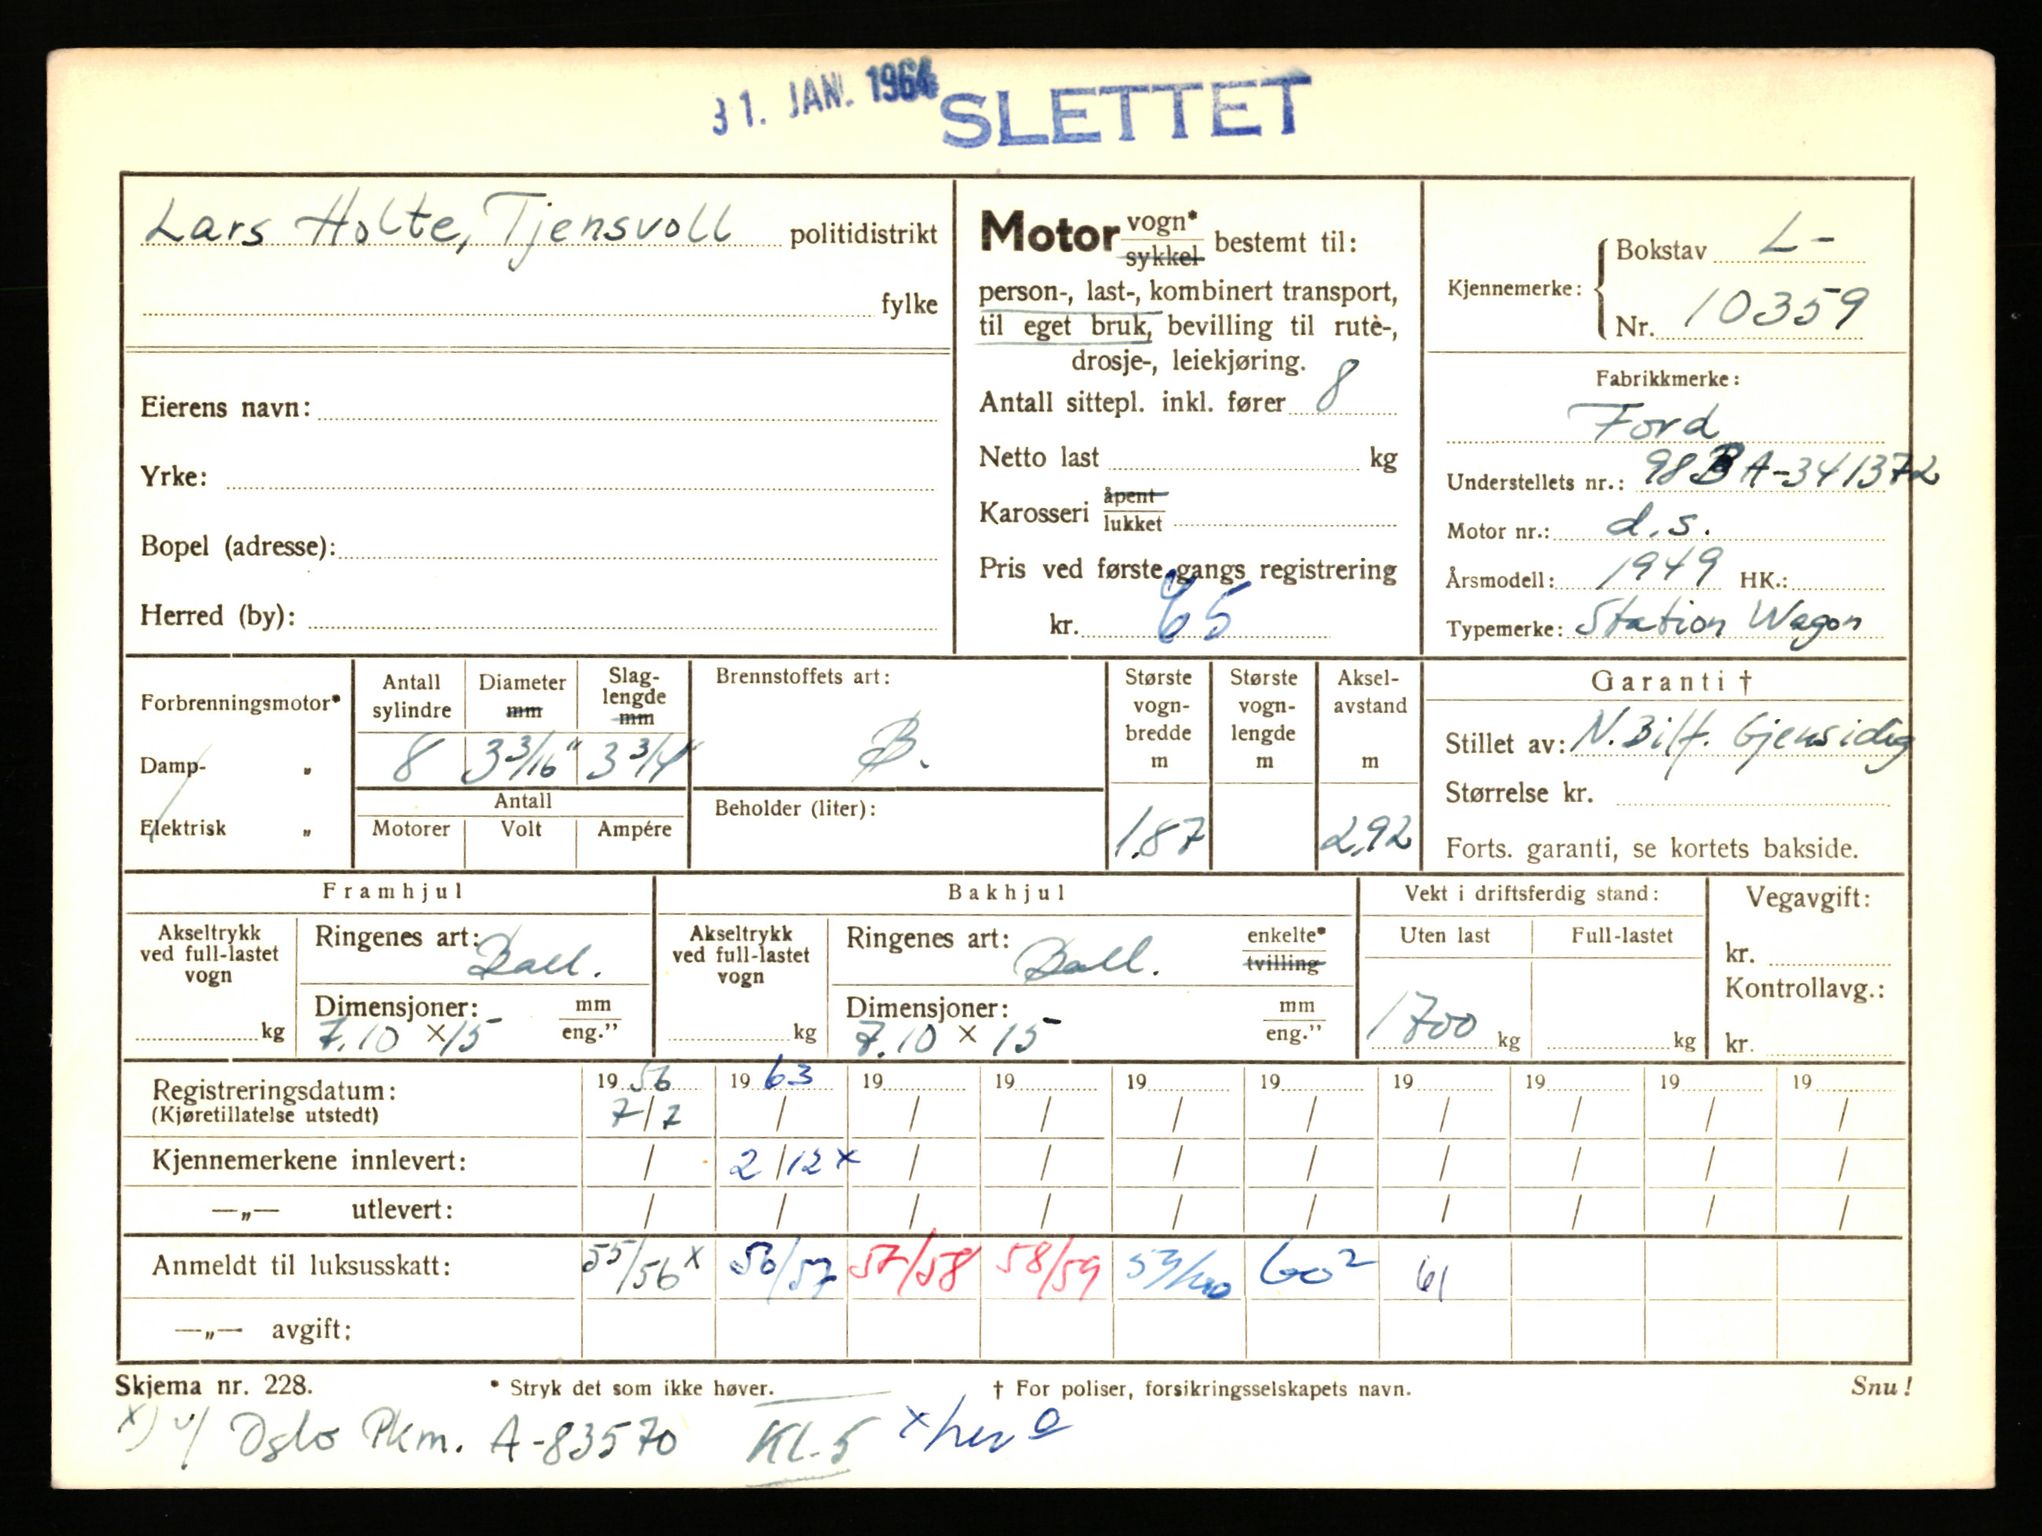 31. JAN. 1964 SLETTET
Lars Holte, Tjensvoll politidistrikt
fylke
Eierens navn:
Yrke:
Bopel (adresse):
Herred (by):
Motor vogn* sykkel bestemt til:
person-, last-, kombinert transport,
til eget bruk, bevilling til rutè-,
drosje-, leiekjøring.
Antall sittepl. inkl. fører 8
Netto last kg
Karosseri åpent lukket
Pris ved første gangs registrering
kr. 65
Kjennemerke: Bokstav L-
Nr. 10359
Fabrikkmerke:
Ford
Understellets nr.: 98BA-341372
Motor nr.: d.s.
Årsmodell: 1949 HK.:
Typemerke: Station Wagon
Forbrenningsmotor*
Damp- "
Elektrisk "
Antall sylindre Diameter mm Slag-lengde mm
8 3 3/16" 3 3/4"
Antall
Motorer Volt Ampére
Brennstoffets art:
B.
Beholder (liter):
Største vogn-bredde m
1.87
Største vogn-lengde m
Aksel-avstand m
2,92
Garanti †
Stillet av: N. Bilf. Gjensidig
Størrelse kr.
Forts. garanti, se kortets bakside.
Framhjul
Akseltrykk ved full-lastet vogn
kg
Ringenes art: Ball.
Dimensjoner: mm
7.10 x 15 eng."
Bakhjul
Akseltrykk ved full-lastet vogn
kg
Ringenes art: Ball. enkelte* tvilling
Dimensjoner: mm
7.10 x 15 eng."
Vekt i driftsferdig stand:
Uten last Full-lastet
1700 kg kg
Vegavgift:
kr.
Kontrollavg.:
kr.
Registreringsdatum: 19 56 19 63 19 19 19 19 19 19 19 19
(Kjøretillatelse utstedt) 7/7 / / / / / / / / /
Kjennemerkene innlevert: / 2/12 x / / / / / / / /
—„— utlevert: / / / / / / / / / /
Anmeldt til luksusskatt: 55/56 x 56/57 57/58 58/59 59/60 60² 61
—„— avgift:
Skjema nr. 228. * Stryk det som ikke høver. † For poliser, forsikringsselskapets navn. Snu!
x) v/ Oslo Pkm. A-83570 Kl. 5